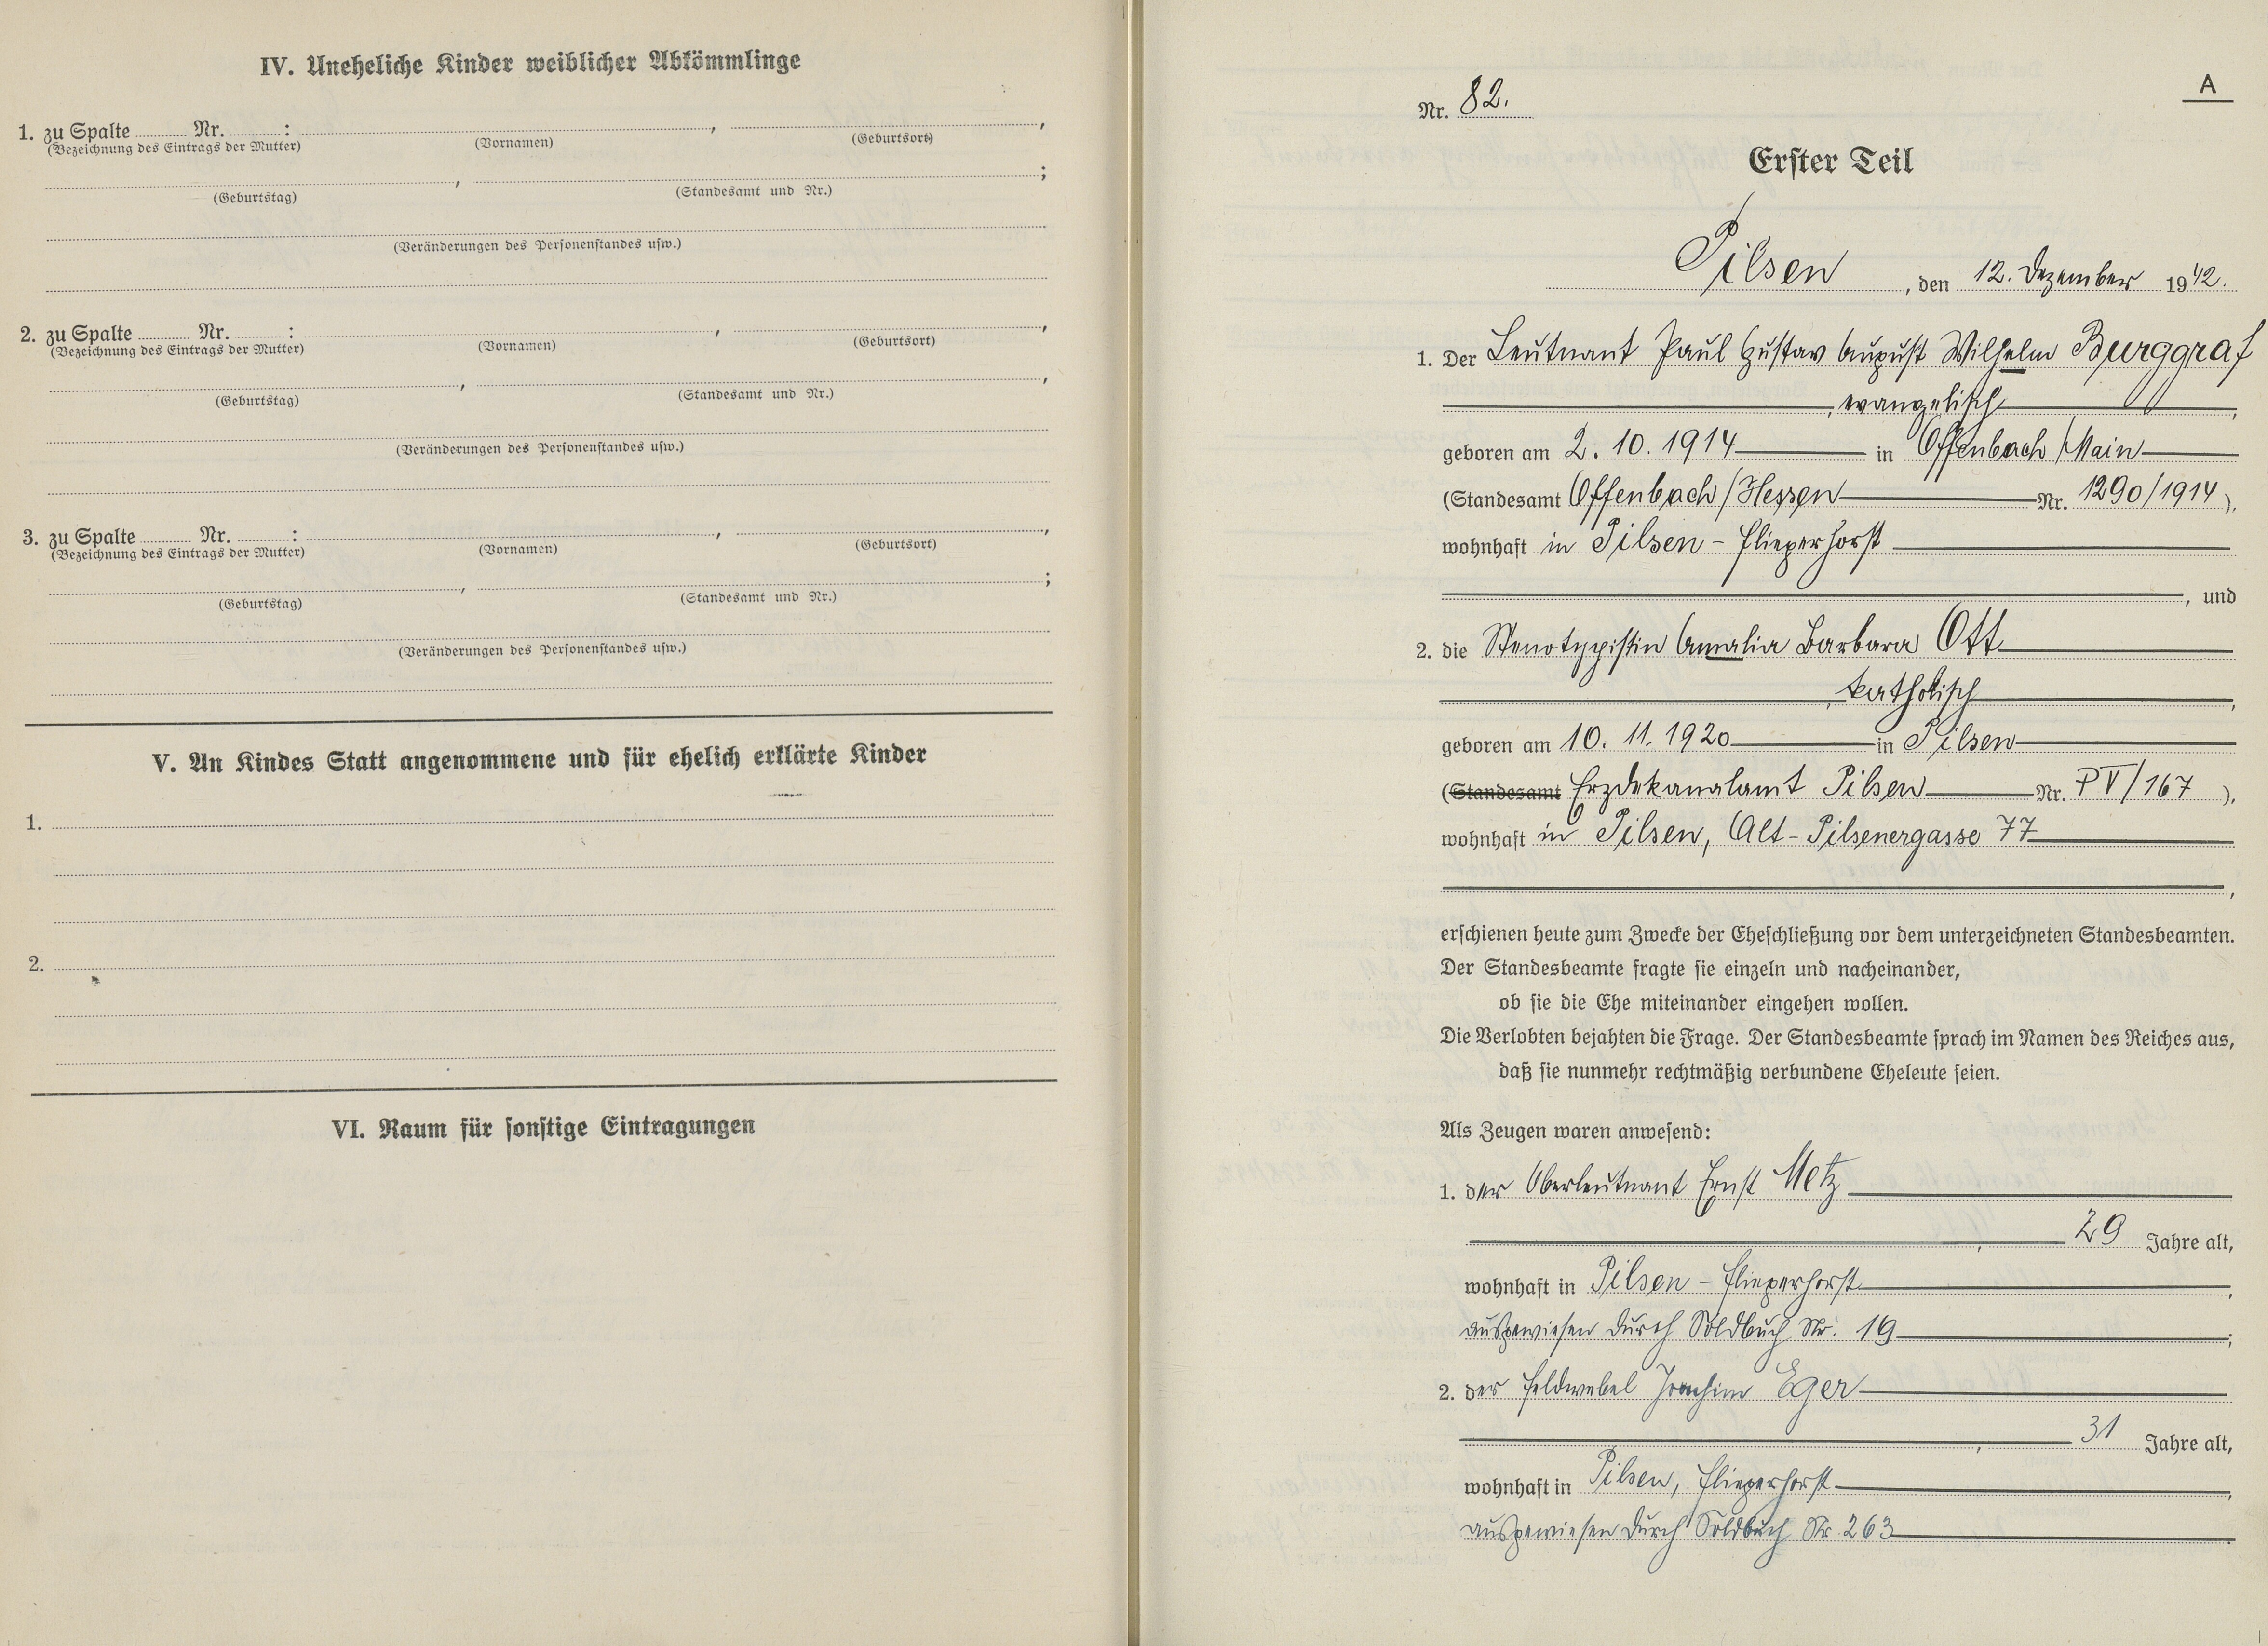 IV. Uneheliche Kinder weiblicher Abkömmlinge
1. zu Spalte ........ Nr. ........ : ........, ........,
(Bezeichnung des Eintrags der Mutter) (Vornamen) (Geburtsort)
........, ........;
(Geburtstag) (Standesamt und Nr.)
(Veränderungen des Personenstandes usw.)
2. zu Spalte ........ Nr. ........ : ........, ........,
(Bezeichnung des Eintrags der Mutter) (Vornamen) (Geburtsort)
........, ........,
(Geburtstag) (Standesamt und Nr.)
(Veränderungen des Personenstandes usw.)
3. zu Spalte ........ Nr. ........ : ........, ........,
(Bezeichnung des Eintrags der Mutter) (Vornamen) (Geburtsort)
........, ........;
(Geburtstag) (Standesamt und Nr.)
(Veränderungen des Personenstandes usw.)
V. An Kindes Statt angenommene und für ehelich erklärte Kinder
1.
2.
VI. Raum für sonstige Eintragungen
A
Nr. 82.
Erster Teil
Pilsen, den 12. Dezember 1942.
1. Der Leutnant Paul Gustav August Wilhelm Burggraf
, evangelisch,
geboren am 2. 10. 1914 in Offenbach/Main
(Standesamt Offenbach/Hessen Nr. 1290/1914),
wohnhaft in Pilsen - Fliegerhorst
, und
2. die Stenotypistin Amalia Barbara Ott
, katholisch,
geboren am 10. 11. 1920 in Pilsen
(Standesamt Erzdekanalamt Pilsen Nr. P V/167),
wohnhaft in Pilsen, Alt-Pilsenergasse 77
,
erschienen heute zum Zwecke der Eheschließung vor dem unterzeichneten Standesbeamten.
Der Standesbeamte fragte sie einzeln und nacheinander,
ob sie die Ehe miteinander eingehen wollen.
Die Verlobten bejahten die Frage. Der Standesbeamte sprach im Namen des Reiches aus,
daß sie nunmehr rechtmäßig verbundene Eheleute seien.
Als Zeugen waren anwesend:
1. der Oberleutnant Ernst Metz
, 29 Jahre alt,
wohnhaft in Pilsen - Fliegerhorst,
ausgewiesen durch Soldbuch Nr. 19;
2. der Feldwebel Joachim Eger
, 31 Jahre alt,
wohnhaft in Pilsen, Fliegerhorst,
ausgewiesen durch Soldbuch Nr. 263.